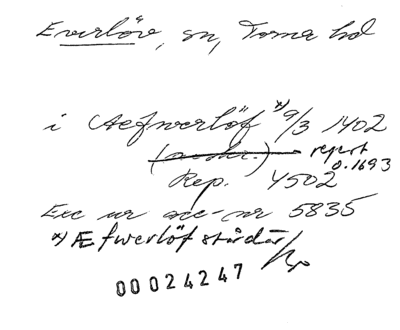 Everlöv, sn, Torna hd
i Aefwerlöf *) 9/3 1402
(orikr.) repert
Rep. 4502 0.1693
Exc ur acc-nr 5835
*) Æfwerlöf står där
00024247